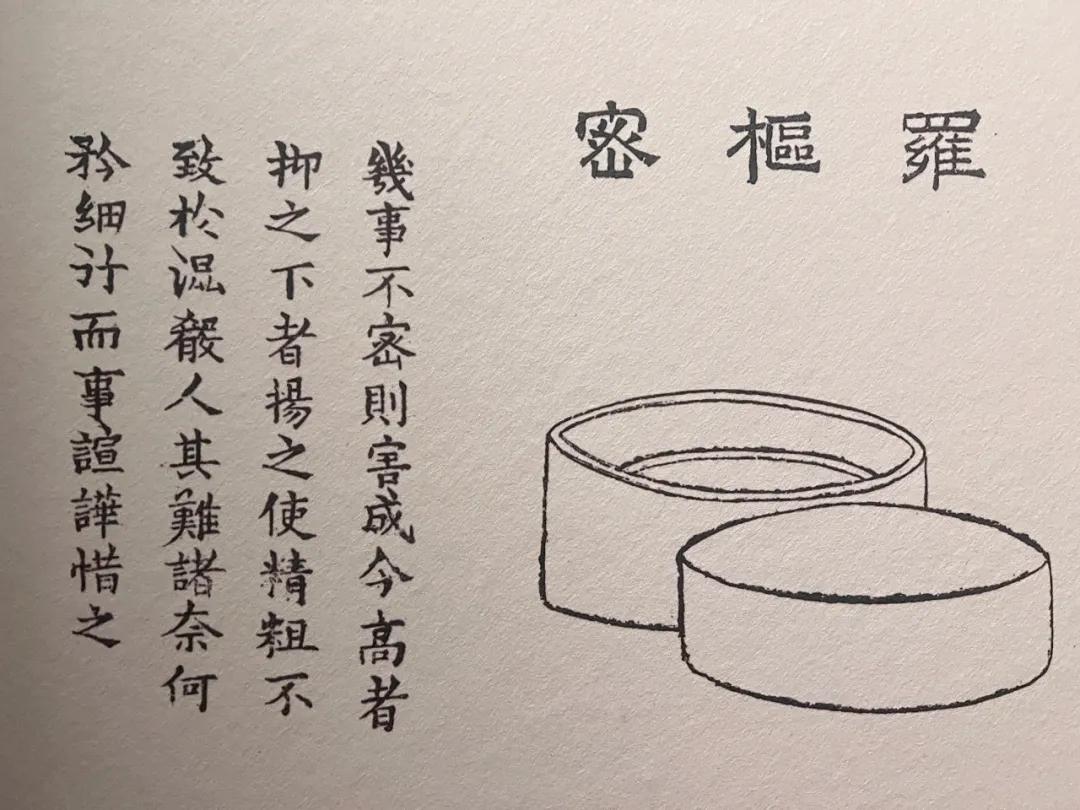 羅樞密
幾事不密則害成今高者
抑之下者揚之使精粗不
致於混殽人其難諸奈何
矜細行而事諠譁惜之